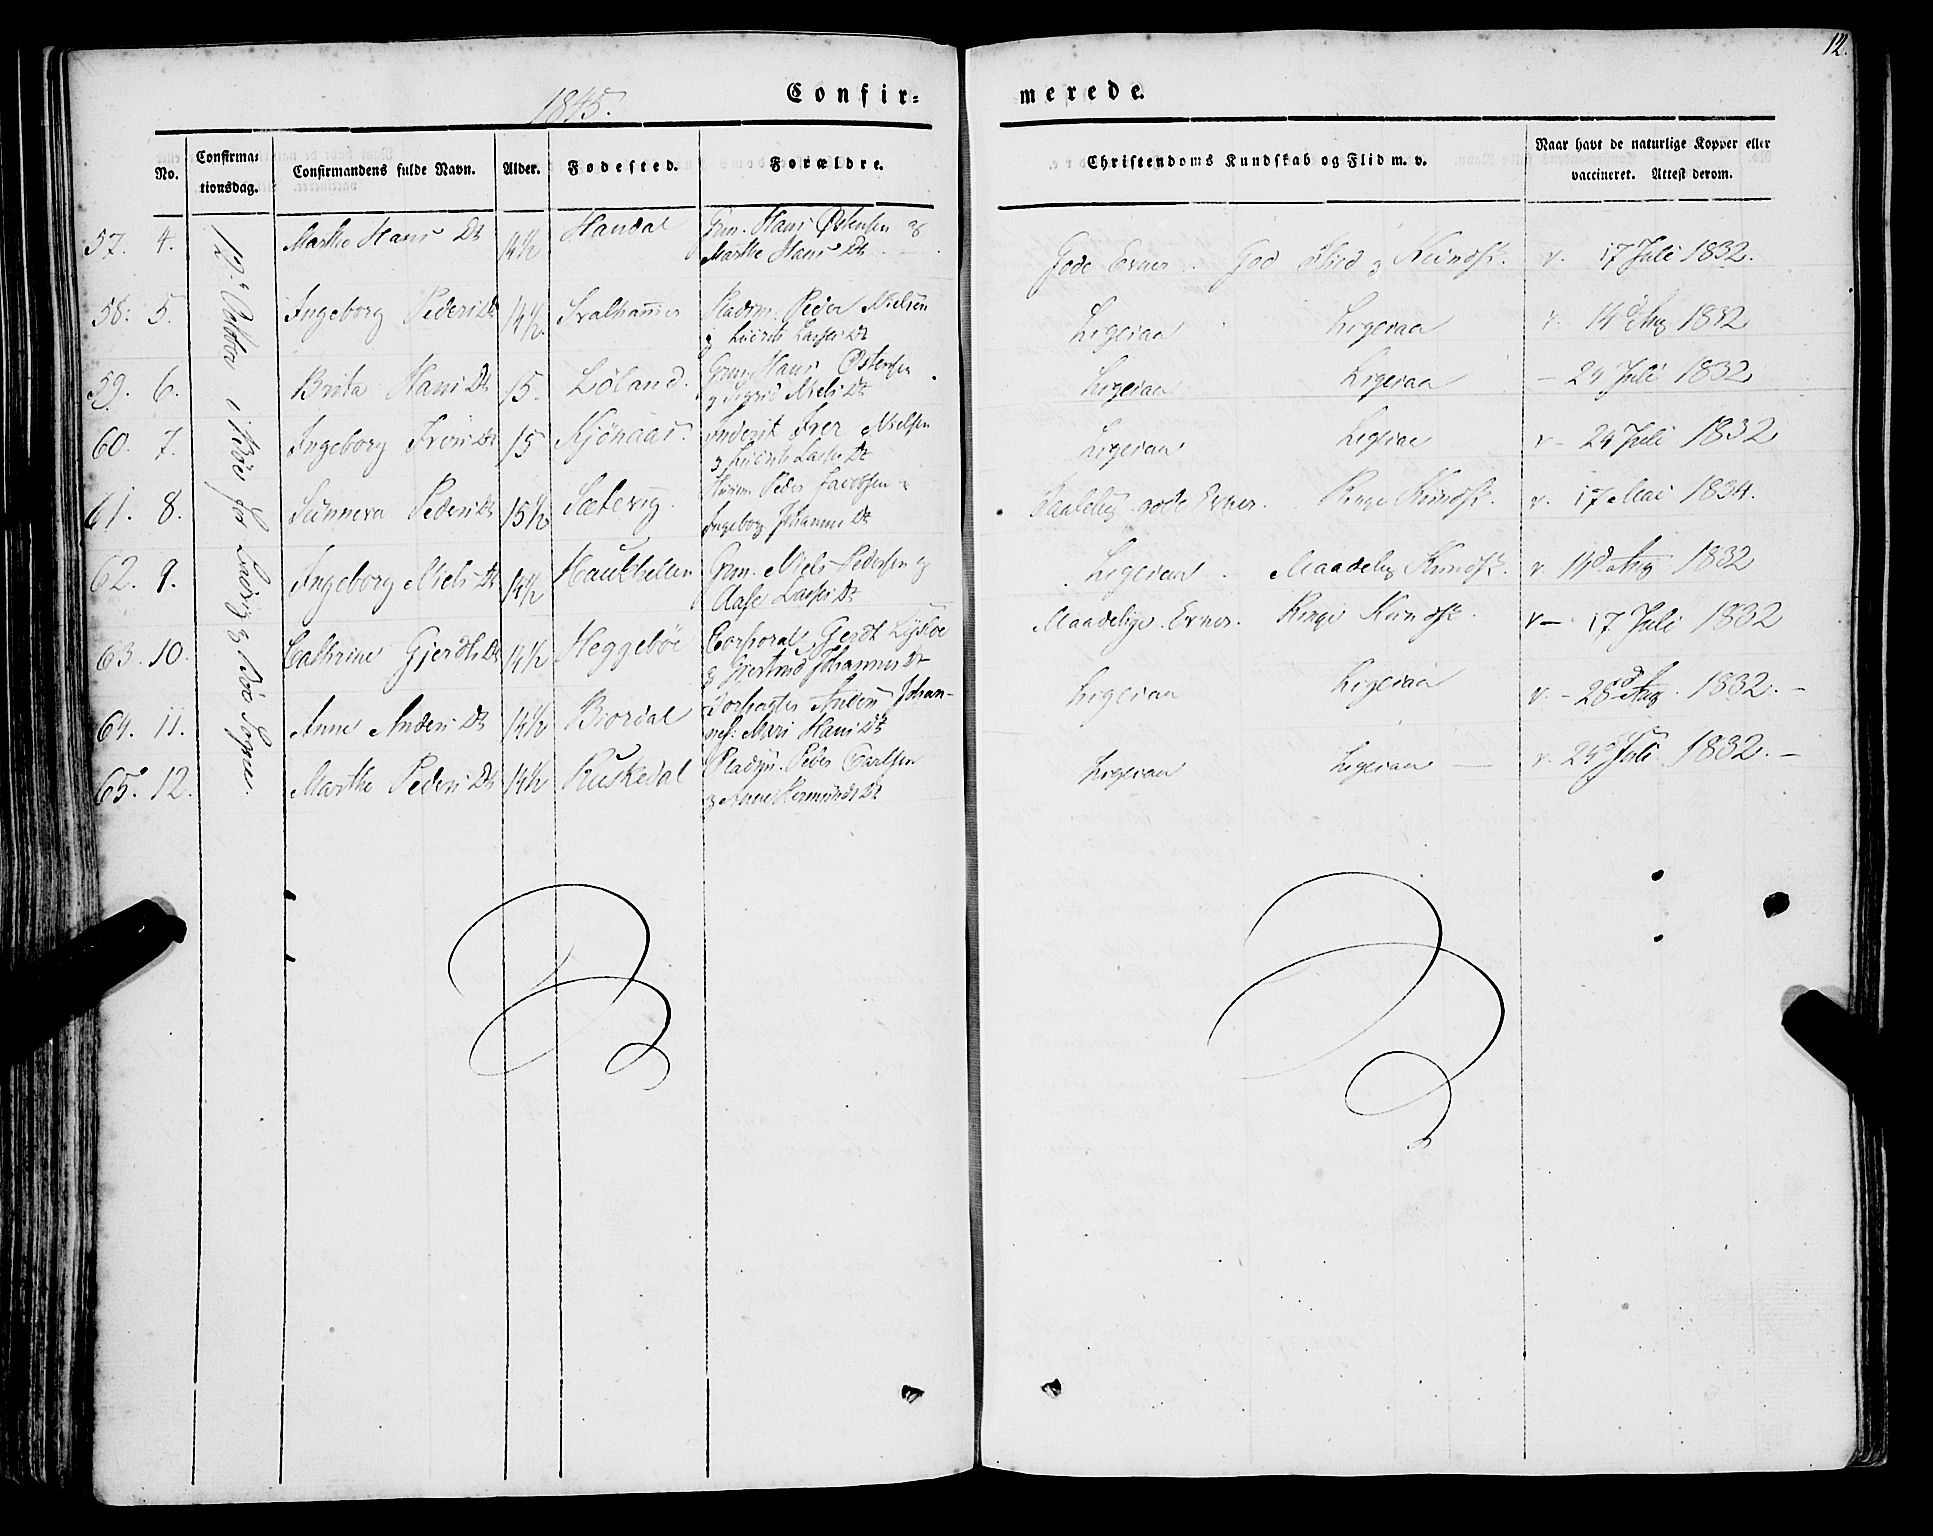 12.
1845.
Confir=
merede.
No.
Confirma=
tionsdag.
Confirmandens fulde Navn.
Alder.
Fødested.
Forældre.
Christendoms Kundskab og Flid m. v.
Naar havt de naturlige Kopper eller
vaccineret. Attest derom.
12. Octbr i Bøe for Ladvig og Bøe Sogne.
57. 4. Marthe Hans Dt 14½ Handal Grm. Hans Østensen og
Marthe Hans Dt
Gode Evner. God Flid og Kundsk. v. 17 Juli 1832.
58. 5. Ingeborg Peders Dt 14½ Svalhammer Pladsm. Peder Nielsen
og Lasses Dt
Ligesaa Ligesaa v. 14 Aug 1832
59. 6. Brita Hans Dt 15. Løland. Grm. Hans Østensen
og Sigrid Niels Dt
Ligesaa Ligesaa - 24 Juli 1832
60. 7. Ingeborg Ivers Dt 15 Kjønaas. Inderst Iver Nielsen
og Lasses Dt
Ligesaa Ligesaa v- 24 Juli 1832
61. 8. Sünneva Peders Dt 15½ Sætevig. Huusm. Peder Jacobsen og
Ingeborg Johannes Dt
Taalelig gode Evner. Ringe Kundsk. v. 17 Mai 1834.
62. 9. Ingeborg Niels Dt 14½ Haukhellen Grm. Niels Pedersen og
Aase Lasses Dt
Ligesaa. Maadelig Kundsk. v. 14 Aug 1832
63. 10. Cathrine Gjerdts Dt 14½ Heggebøe Corporal Gerdt Lijskoe
og Gjertrud Johannes Dt
Maadelige Evner. Ringe Kundsk. v- 17 Juli 1832
64. 11. Anne Anders Dt 14½ Biordal Forpagter Anders Johan-
nes: Mari Hans Dt
Ligesaa Ligesaa v. - 28 Aug. 1832. -
65. 12. Marthe Peders Dt 14½ Ruskedal Pladsm. Peder Carlsen
og Anne Hermunds Dt
Ligesaa Ligesaa - v. 24 Juli 1832. -